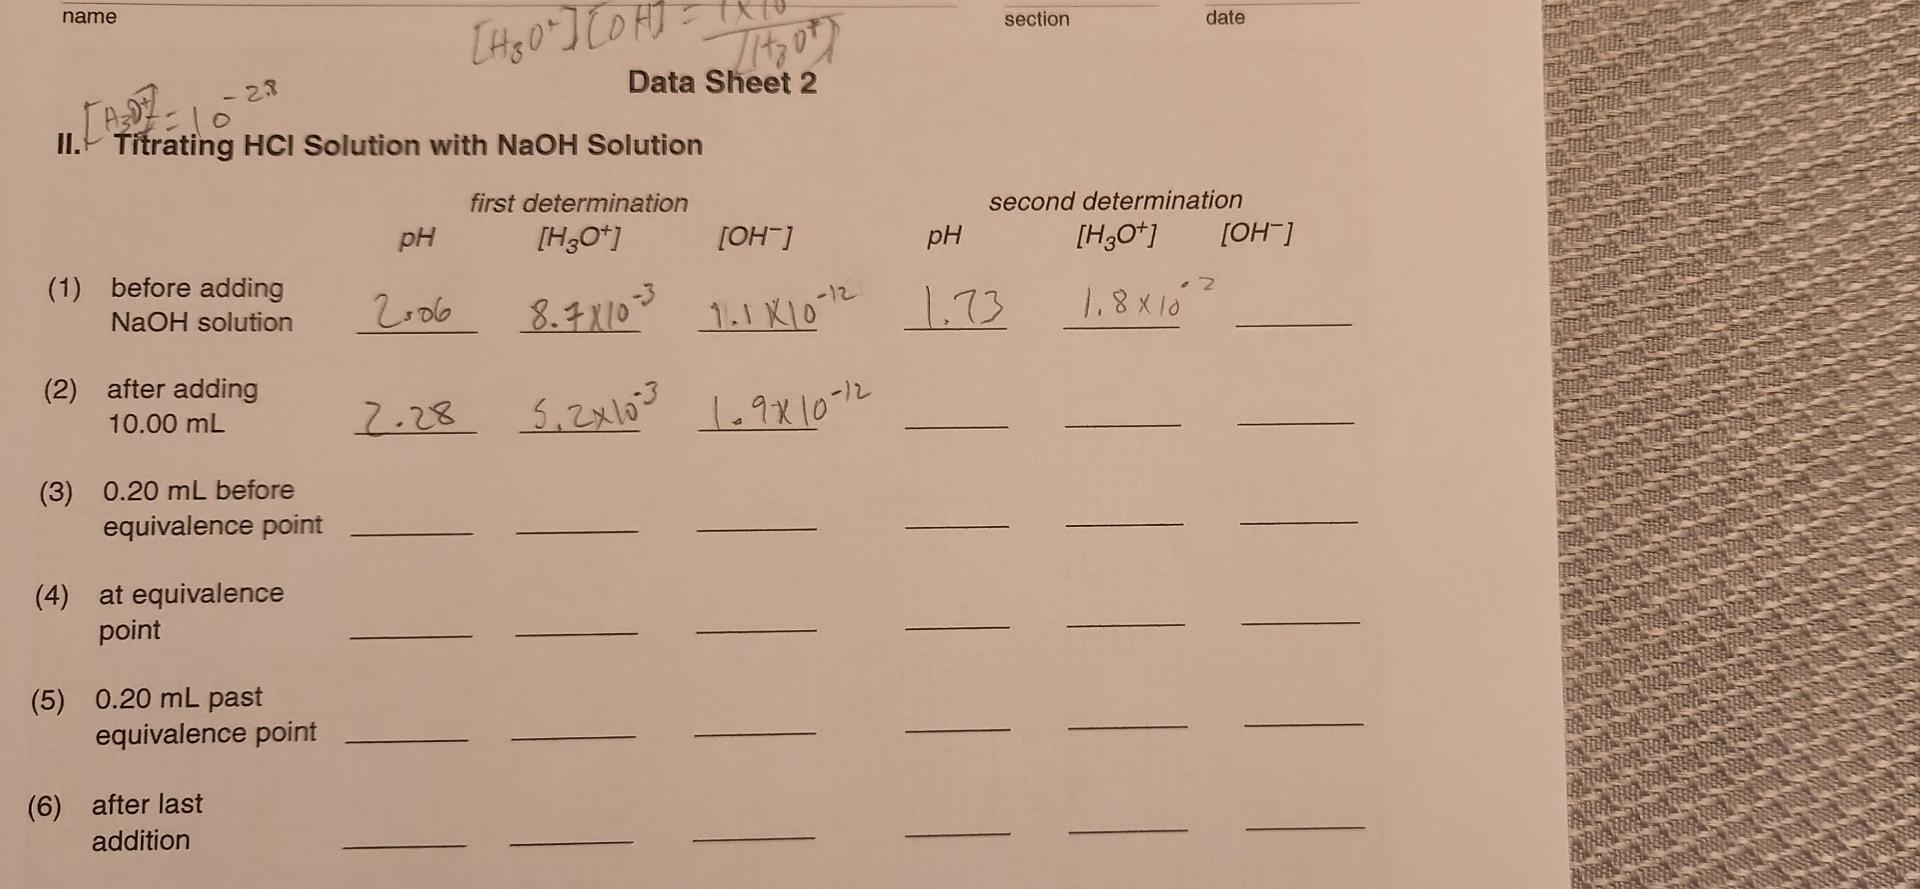 name section date
[H3O+][OH] = 1x10
[H3O+]
Data Sheet 2
[H3O+] = 10^-2.8
II. Titrating HCl Solution with NaOH Solution
first determination second determination
pH [H3O+] [OH−] pH [H3O+] [OH−]
(1) before adding
NaOH solution 2.06 8.7x10^-3 1.1x10^-12 1.73 1.8x10^-2
(2) after adding
10.00 mL 2.28 5.2x10^-3 1.9x10^-12
(3) 0.20 mL before
equivalence point
(4) at equivalence
point
(5) 0.20 mL past
equivalence point
(6) after last
addition